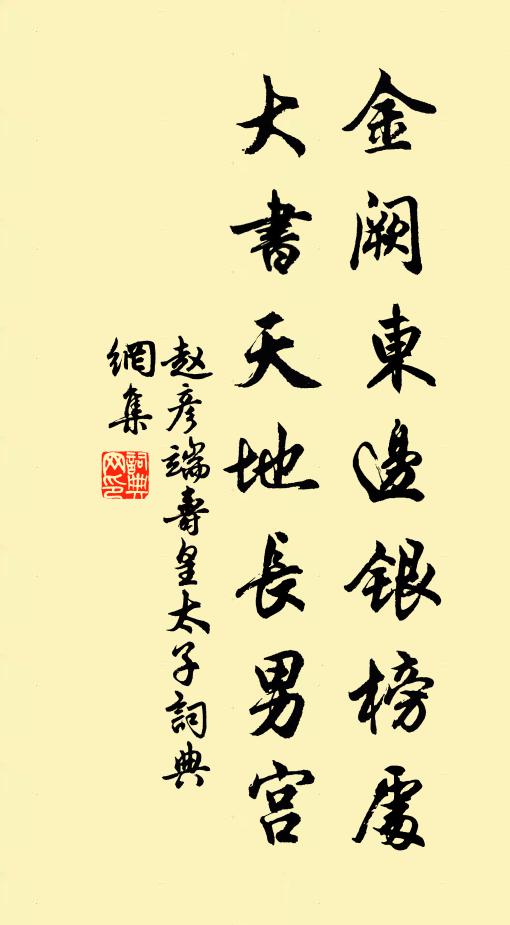 金阙東邊銀榜處
大書天地長男宫
赵彦端壽皇太子詞典
網集
詞典網印